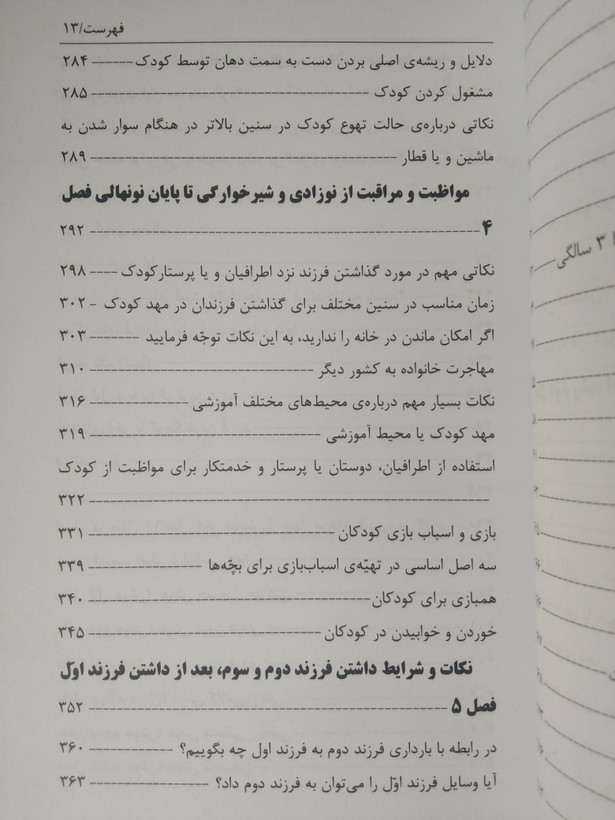 فهرست/۱۳
دلایل و ریشه‌ی اصلی بردن دست به سمت دهان توسط کودک ------ ۲۸۴
مشغول کردن کودک ---------------------------------------- ۲۸۵
نکاتی درباره‌ی حالت تهوع کودک در سنین بالاتر در هنگام سوار شدن به
ماشین و یا قطار -------------------------------------------- ۲۸۹
مواظبت و مراقبت از نوزادی و شیرخوارگی تا پایان نونهالی فصل
۴ ------------------------------------------------------ ۲۹۲
نکاتی مهم در مورد گذاشتن فرزند نزد اطرافیان و یا پرستارکودک ---- ۲۹۸
زمان مناسب در سنین مختلف برای گذاشتن فرزندان در مهد کودک - ۳۰۲
اگر امکان ماندن در خانه را ندارید، به این نکات توجّه فرمایید -------- ۳۰۳
مهاجرت خانواده به کشور دیگر -------------------------------- ۳۱۰
نکات بسیار مهم درباره‌ی محیط‌های مختلف آموزشی -------------- ۳۱۶
مهد کودک یا محیط آموزشی --------------------------------- ۳۱۹
استفاده از اطرافیان، دوستان یا پرستار و خدمتکار برای مواظبت از کودک
------------------------------------------------------- ۳۲۲
بازی و اسباب بازی کودکان --------------------------------- ۳۳۱
سه اصل اساسی در تهیّه‌ی اسباب‌بازی برای بچّه‌ها ---------------- ۳۳۹
همبازی برای کودکان--------------------------------------- ۳۴۰
خوردن و خوابیدن در کودکان --------------------------------- ۳۴۵
نکات و شرایط داشتن فرزند دوم و سوم، بعد از داشتن فرزند اوّل
فصل ۵ -------------------------------------------------- ۳۵۲
در رابطه با بارداری فرزند دوم به فرزند اول چه بگوییم؟ ------------ ۳۶۰
آیا وسایل فرزند اوّل را می‌توان به فرزند دوم داد؟ ---------------- ۳۶۳
۳ سالگی